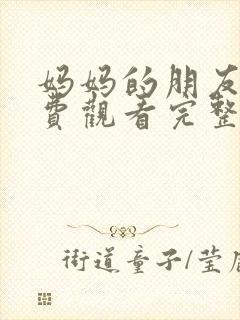 妈妈的朋友
费觀看完整
街道童子/莹